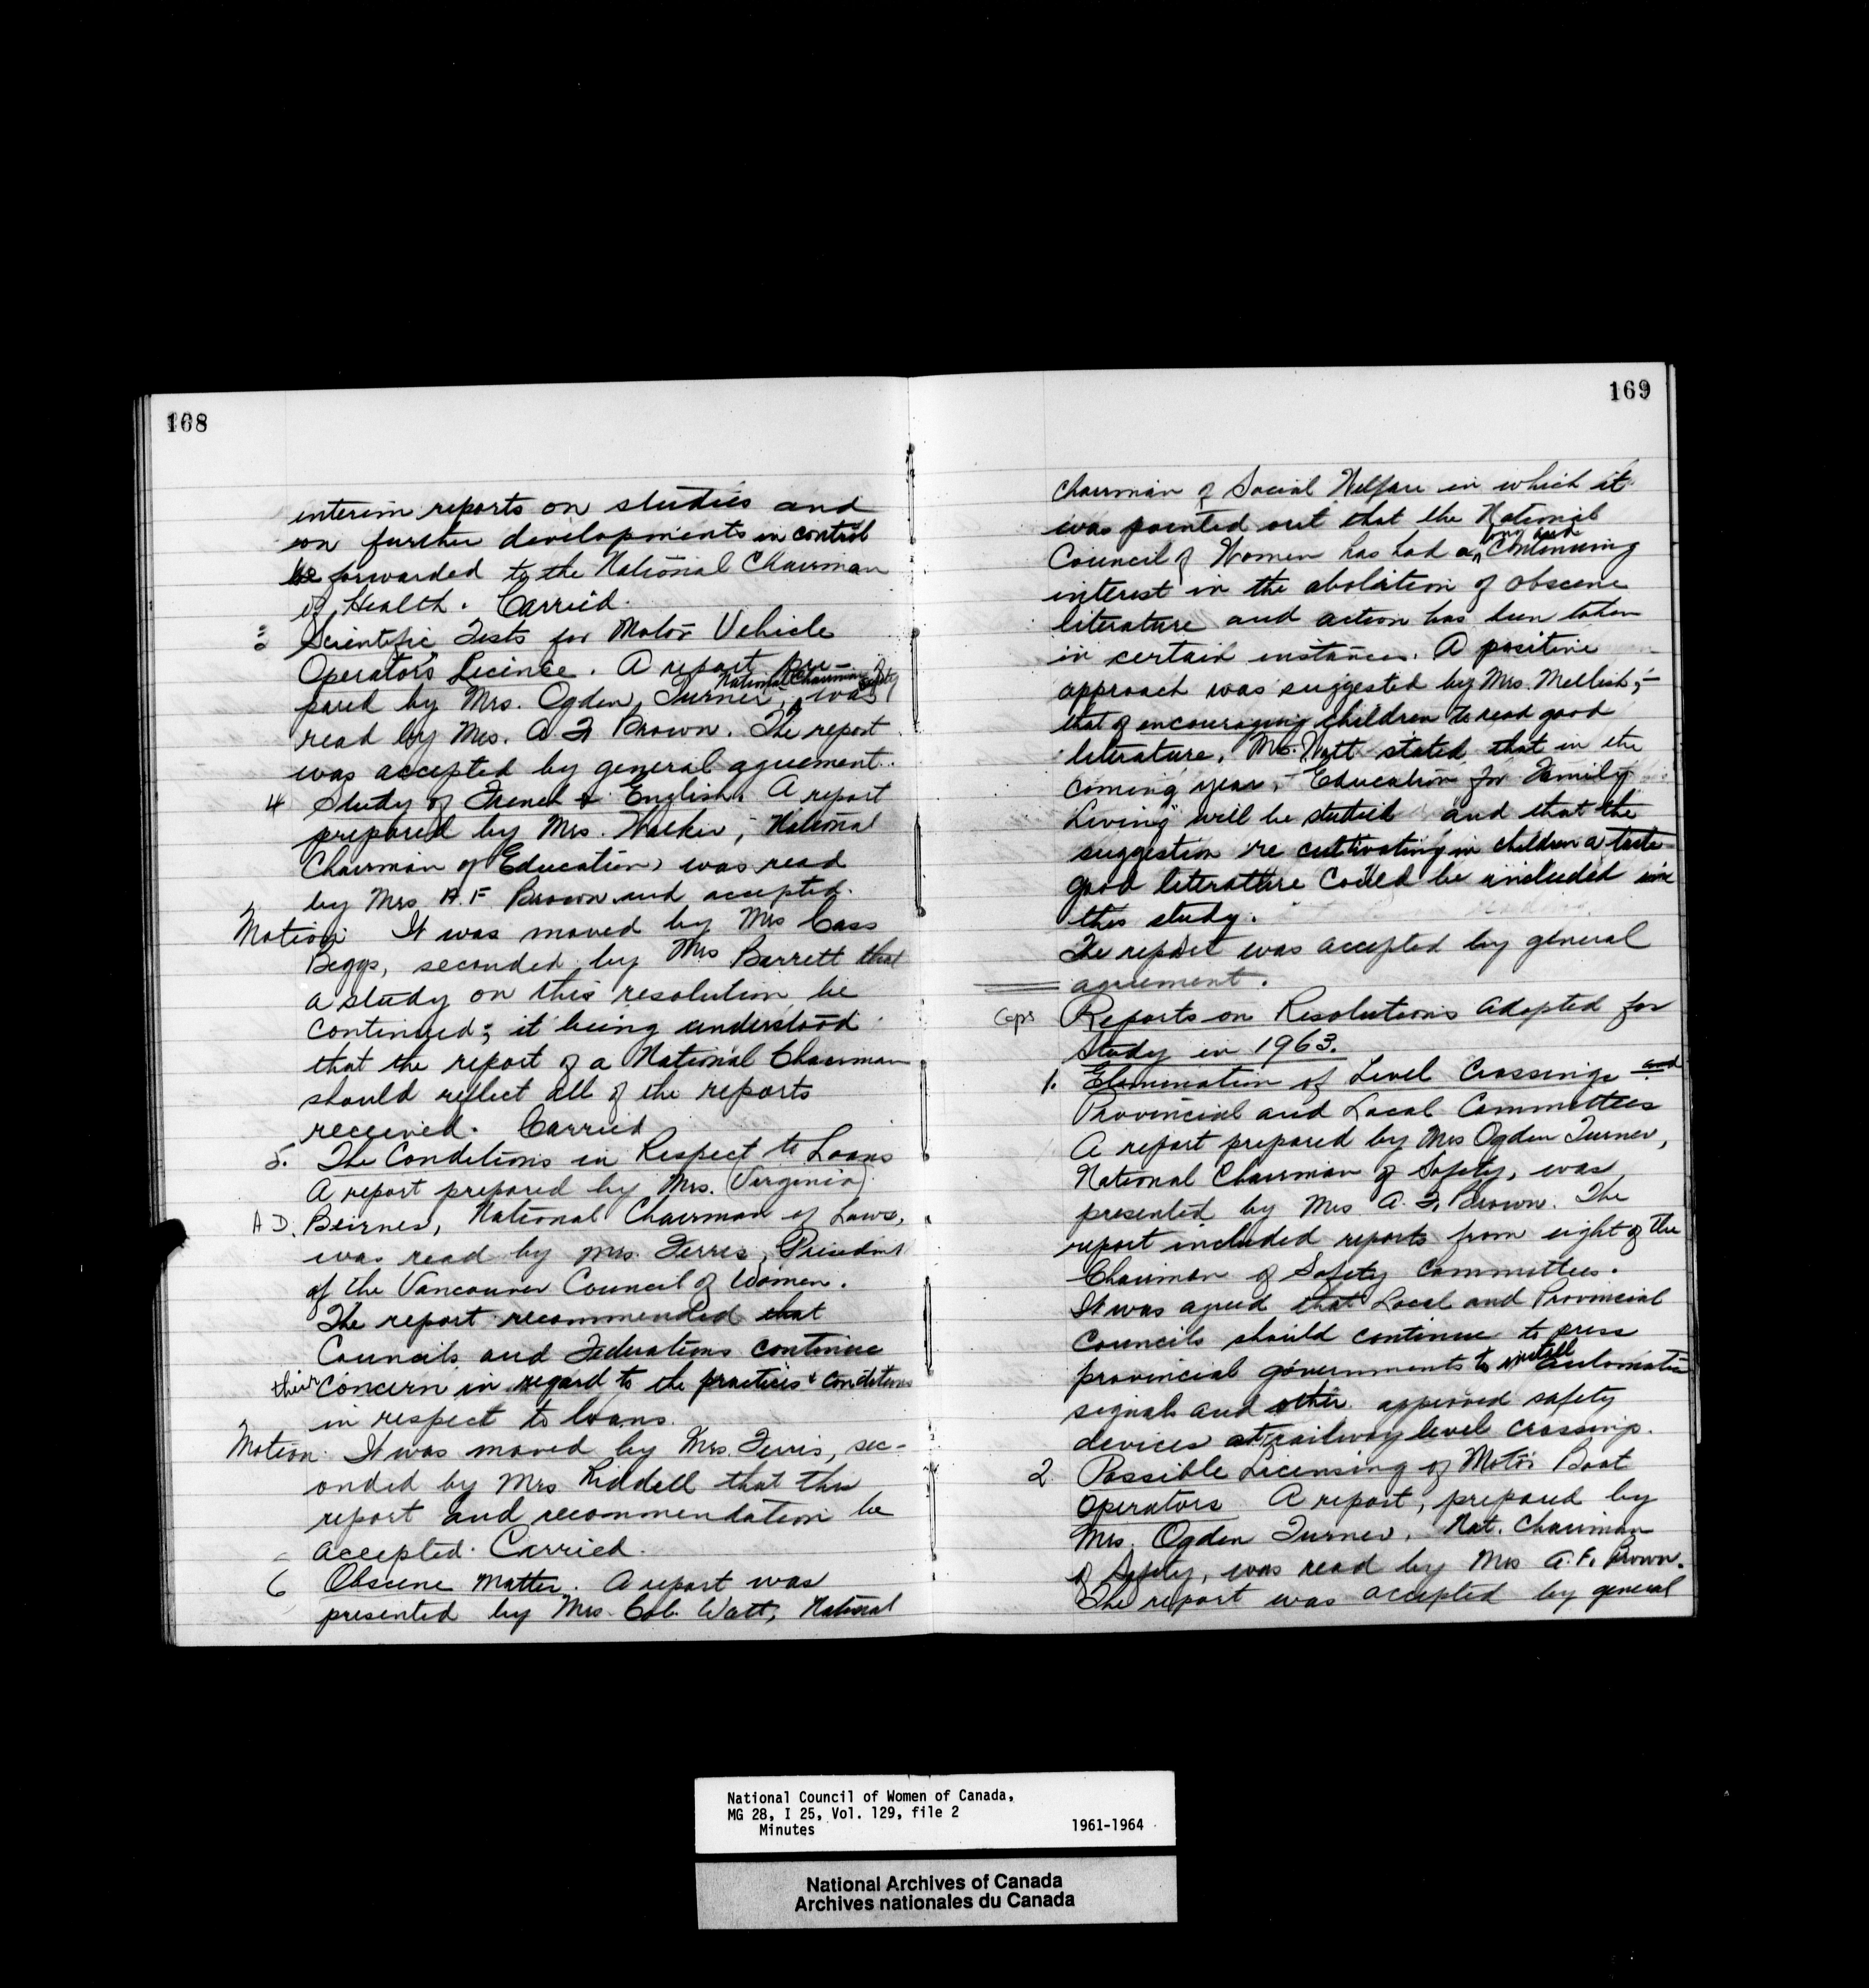 168
interim reports on studies and
on further developments in control
be forwarded to the National Chairman
of Health. Carried.
3 Scientific Tests for Motor Vehicle
Operator's License. A report pre-
National Chairman of Safety
pared by Mrs. Ogden Turner, was
read by Mrs. A. F. Brown. The report
was accepted by general agreement.
4 Study of French & English. A report
prepared by Mrs. Walker, National
Chairman of Education, was read
by Mrs A.F. Brown and accepted.
Motion It was moved by Mrs Cass
Beggs, seconded by Mrs Barrett that
a study on this resolution be
continued; it being understood
that the report of a National Chairman
should reflect all of the reports
received. Carried
5. The Conditions in Respect to Loans
A report prepared by Mrs. (Virginia)
A D. Beirnes, National Chairman of Laws,
was read by Mrs. Ferris, President
of the Vancouver Council of Women.
The report recommended that
Councils and Federations continue
their concern in regard to the practices & conditions
in respect to loans.
Motion. It was moved by Mrs. Ferris, sec-
onded by Mrs Riddell that this
report and recommendation be
accepted. Carried.
6 Obscene Matter. A report was
presented by Mrs. Watt, National
169
Chairman of Social Welfare in which it
was pointed out that the National
long and
Council of Women has had a continuing
interest in the abolition of obscene
literature and action has been taken
in certain instances. A positive
approach was suggested by Mrs. Mellish,-
that of encouraging children to read good
literature. Mrs. Watt stated that in the
coming year, "Education for Family
Living" will be studied and that the
suggestion re cultivating in children a taste
good literature could be included in
this study.
The report was accepted by general
agreement.
Caps Reports on Resolutions adopted for
Study in 1963.
1. Elimination of Level Crossings and
Provincial and Local Committees
A report prepared by Mrs Ogden Turner,
National Chairman of Safety, was
presented by Mrs A. F. Brown. The
report included reports from eight of the
Chairman of Safety Committees.
It was agreed that Local and Provincial
Councils should continue to press
provincial governments to install automatic
signals and other approved safety
devices at railway level crossings.
2 Possible Licensing of Motor Boat
Operators A report, prepared by
Mrs. Ogden Turner, Nat. Chairman
of Safety, was read by Mrs A.F. Brown.
The report was accepted by general
National Council of Women of Canada,
MG 28, I 25, Vol. 129, file 2
Minutes 1961-1964
National Archives of Canada
Archives nationales du Canada